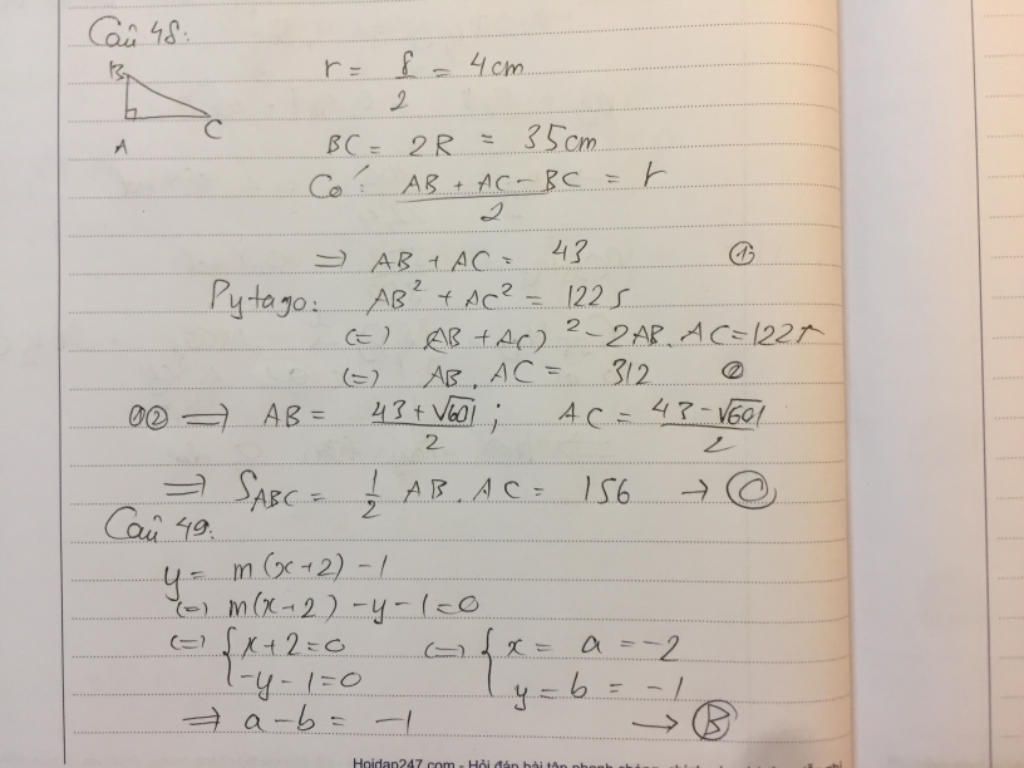 Câu 48:
B
A
C
r = 8/2 = 4cm
BC = 2R = 35cm
Có: (AB + AC - BC)/2 = r
⇒ AB + AC = 43 ①
Pytago: AB² + AC² = 1225
(=) (AB + AC)² - 2AB.AC = 1225
(=) AB.AC = 312 ②
①② ⇒ AB = (43 + √601)/2 ; AC = (43 - √601)/2
⇒ S_ABC = 1/2 AB.AC = 156 → Ⓒ
Câu 49:
y = m(x+2) - 1
(=) m(x+2) - y - 1 = 0
(=) { x + 2 = 0 (=) { x = a = -2
-y - 1 = 0 y = b = -1
⇒ a - b = -1 → Ⓑ
Hoidap247.com - Hỏi đáp bài tập nhanh chóng